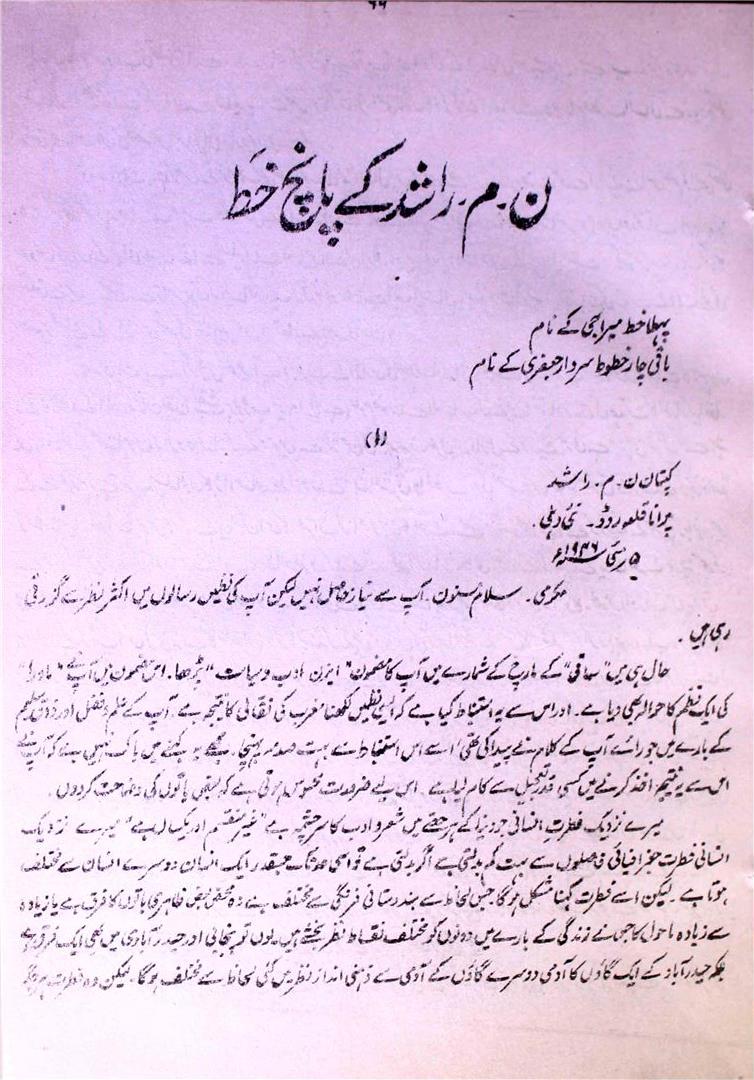 ۶۶
ن۔ م۔ راشد کے پانچ خط
پہلا خط میراجی کے نام
باقی چار خطوط سردار جعفری کے نام
(۱)
کپتان ن۔ م۔ راشد
پرانا قلعہ روڈ۔ نئی دہلی۔
۵ مئی ۱۹۴۶ء
مکرمی۔ سلام مسنون۔ آپ سے نیاز حاصل نہیں لیکن آپ کی نظمیں رسالوں میں اکثر نظر سے گزرتی
رہی ہیں۔
حال ہی میں "ساقی" کے مارچ کے شمارے میں آپ کا مضمون "ایزن ادب و سیاست" پڑھا۔ اس مضمون میں آپ نے "ماورا"
کی ایک نظم کا حوالہ بھی دیا ہے۔ اور اس سے یہ استنباط کیا ہے کہ ایسی نظمیں لکھنا مغرب کی نقالی کا نتیجہ ہے۔ آپ کے علم و فضل اور ذوق سلیم
کے بارے میں جو رائے آپ کے کلام نے پیدا کی تھی اسے اس استنباط سے بہت صدمہ پہنچا۔ مجھے یہ کہنے میں باک نہیں ہے کہ آپ نے
اس سے یہ نتیجہ اخذ کرنے میں کسی قدر تعجیل سے کام لیا ہے۔ اس لیے ضرورت محسوس ہوتی ہے کہ بعض باتوں کی وضاحت کر دوں۔
میرے نزدیک فطرت انسانی جو دنیا کے ہر حصے میں شعر و ادب کا سرچشمہ ہے "غیر منقسم اور یکساں ہے" میرے نزدیک
انسانی فطرت جغرافیائی فاصلوں سے بہت کم بدلتی ہے اگر بدلتی ہے تو اسی حد تک جس قدر ایک انسان دوسرے انسان سے مختلف
ہوتا ہے۔ لیکن اسے فطرت کہنا مشکل ہوگا۔ جس لحاظ سے ہندوستانی فرنگی سے مختلف ہے وہ محض بعض ظاہری باتوں کا فرق ہے یا زیادہ
سے زیادہ ماحول کا جس نے زندگی کے بارے میں دونوں کو مختلف نقاط نظر بخشے ہیں۔ یوں تو پنجابی اور حیدرآبادی میں بھی ایک فرق ہے
بلکہ حیدرآباد کے ایک گاؤں کا آدمی دوسرے گاؤں کے آدمی سے ذہنی انداز نظر میں کئی لحاظ سے مختلف ہوگا۔ لیکن وہ فطرت جو